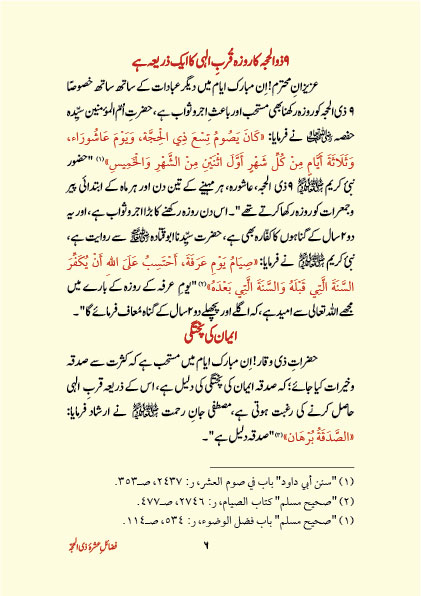 ۹ ذو الحجہ کا روزہ قُربِ الٰہی کا ایک ذریعہ ہے
عزیزانِ محترم! اِن مبارک ایام میں دیگر عبادات کے ساتھ ساتھ خصوصًا
۹ ذی الحجہ کو روزہ رکھنا بھی مستحب اور باعثِ اجر وثواب ہے، حضرتِ اُمّ المؤمنین سیّدہ
حفصہ ﷺ نے فرمایا: «كَانَ يَصُومُ تِسْعَ ذِي الحِجَّة، وَيَوْمَ عَاشُورَاء،
وَثَلَاثَةَ أَيَّامٍ مِنْ كُلِّ شَهْرٍ أَوَّلَ اثْنَيْنِ مِنَ الشَّهْرِ وَالْخَمِيسِ»(۱) "حضور
نبئ کریم ﷺ ۹ ذی الحجہ، عاشورہ، ہر مہینے کے تین دن اور ہر ماہ کے ابتدائی پیر
وجمعرات کو روزہ رکھا کرتے تھے"۔ اس دن روزہ رکھنے کا بڑا اجر وثواب ہے، اور یہ
دو ۲ سال کے گناہوں کا کفّارہ بھی ہے، حضرت سیّدنا ابو قتادہ ﷺ سے روایت ہے،
نبئ کریم ﷺ نے فرمایا: «صِيَامُ يَوْمِ عَرَفَةَ، أَحْتَسِبُ عَلَى اللهِ أَنْ يُكَفِّرَ
السَّنَةَ الَّتِي قَبْلَهُ وَالسَّنَةَ الَّتِي بَعْدَهُ»(۲) "یومِ عرفہ کے روزہ کے بارے میں
مجھے اللہ تعالی سے امید ہے، کہ اگلے اور پچھلے دو ۲ سال کے گناہ مُعاف فرمائے گا"۔
ایمان کی پختگی
حضراتِ ذی وقار! اِن مبارک ایام میں مستحب ہے کہ کثرت سے صدقہ
وخیرات کیا جائے؛ کہ صدقہ ایمان کی پختگی کی دلیل ہے، اس کے ذریعہ قربِ الٰہی
حاصل کرنے کی رغبت ہوتی ہے، مصطفی جانِ رحمت ﷺ نے ارشاد فرمایا:
«الصَّدَقَةُ بُرْهَان»(۳) "صدقہ دلیل ہے"۔
(۱) "سنن أبي داود" باب في صوم العشر، ر: ۲٤۳۷، صـ۳٥۳.
(۲) "صحيح مسلم" كتاب الصيام، ر: ۲۷٤٦، صـ٤۷۷.
(۱) "صحيح مسلم" باب فضل الوضوء، ر: ٥۳٤، صـ۱۱٤.
۶
فضائلِ عشرۂ ذی الحجّہ